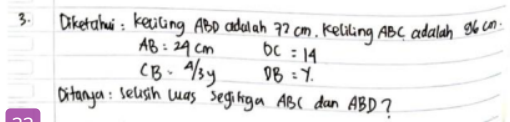 3. Diketahui : keliling ABD adalah 72 cm. Keliling ABC adalah 96 cm.
AB = 24 cm DC = 14
CB = 4/3y DB = Y.
Ditanya : selisih luas segitiga ABC dan ABD?
22